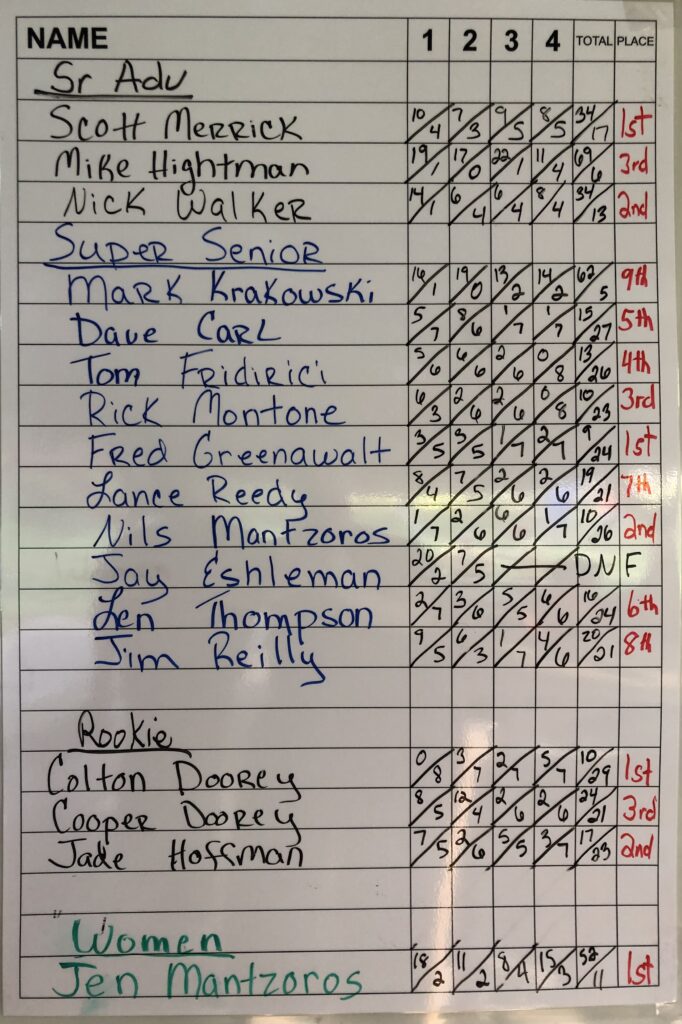 NAME 1 2 3 4 TOTAL PLACE
Sr Adv
Scott Merrick 10/4 7/3 9/5 8/5 34/17 1st
Mike Hightman 19/1 17/0 22/1 11/4 69/6 3rd
Nick Walker 14/1 6/4 6/4 8/4 34/13 2nd
Super Senior
Mark Krakowski 16/1 19/0 13/2 14/2 62/5 9th
Dave Carl 5/7 8/6 1/7 1/7 15/27 5th
Tom Fridirici 5/6 6/6 2/6 0/8 13/26 4th
Rick Montone 6/3 2/6 2/6 0/8 10/23 3rd
Fred Greenawalt 3/5 3/5 1/7 2/7 9/24 1st
Lance Reedy 8/4 7/5 2/6 2/6 19/21 7th
Nils Mantzoros 1/7 2/6 6/6 1/7 10/26 2nd
Jay Eshleman 20/2 7/5 — — DNF
Len Thompson 2/7 3/6 5/5 6/6 16/24 6th
Jim Reilly 9/5 6/3 1/7 4/6 20/21 8th
Rookie
Colton Doorey 0/8 3/7 2/7 5/7 10/29 1st
Cooper Doorey 8/5 12/4 2/6 2/6 24/21 3rd
Jade Hoffman 7/5 2/6 5/5 3/7 17/23 2nd
Women
Jen Mantzoros 18/2 11/2 8/4 15/3 52/11 1st